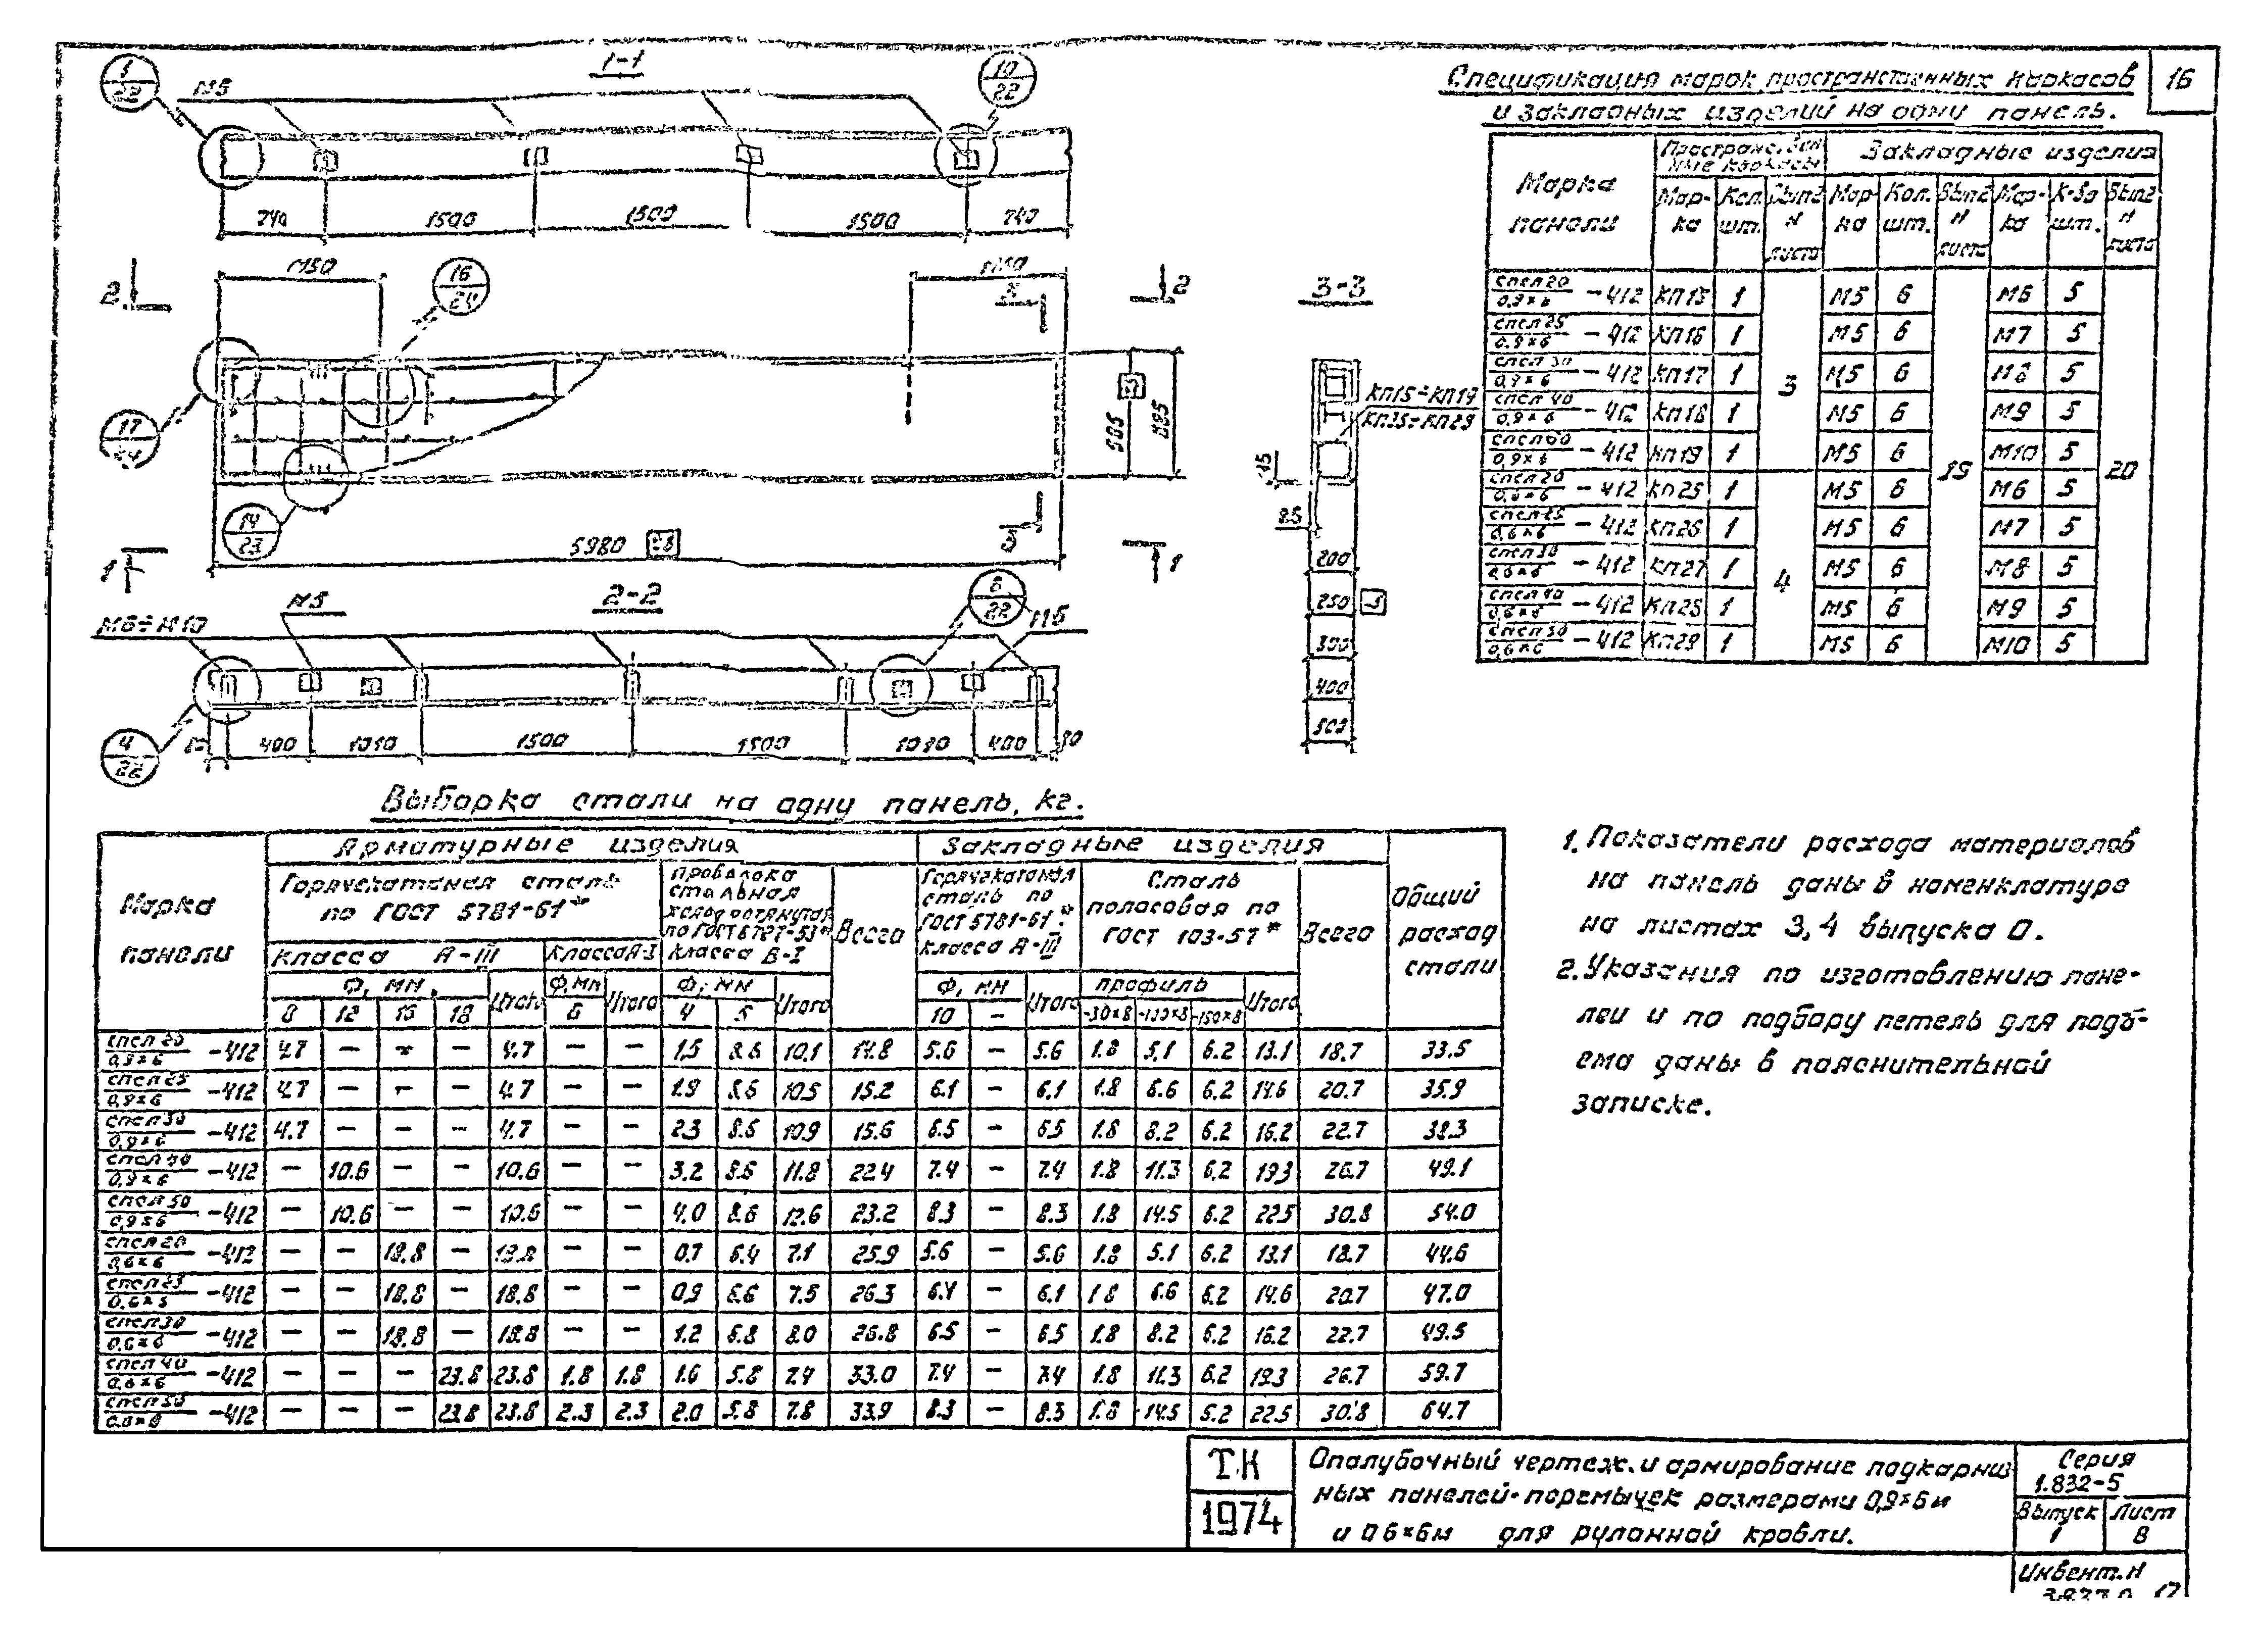 16
Спецификация марок пространственных каркасов
и закладных изделий на одну панель.
Марка панели
Закладные изделия
Мар-ка Кол. шт. Вып. и листа Мар-ка Кол. шт. Вып. и листа Мар-ка К-во шт. Вып. и листа
спсл 20/0,9×6 -412 КП15 1 М5 6 М6 5
спсл 25/0,9×6 -412 КП16 1 М5 6 М7 5
спсл 30/0,9×6 -412 КП17 1 3 М5 6 М8 5
спсл 40/0,9×6 -412 КП18 1 М5 6 М9 5
-412 КП19 1 М5 6 19 М10 5 20
спсл 20/0,6×6 -412 КП25 1 М5 6 М6 5
спсл 25/0,6×6 -412 КП26 1 М5 6 М7 5
спсл 30/0,6×6 -412 КП27 1 4 М5 6 М8 5
спсл 40/0,6×6 -412 М5 6 М9 5
спсл 50/0,6×6 -412 КП29 1 М5 6 М10 5
1-1
1/22
М5
10/22
740 1500 1500 1500 740
2
16/24
2
17/24
885
14/23
5980
1
1
3-3
КП15÷КП19
15
25
200
250
300
400
500
2-2
М6÷М10
М5
22
М5
4/22
400 1010 1500 1500 400
Выборка стали на одну панель, кг.
Марка панели
Арматурные изделия
Закладные изделия
Общий расход стали
Горячекатаная сталь по ГОСТ 5781-61*
Проволока стальная холоднотянутая по ГОСТ 6727-53* класса В-I
Всего
Горячекатаная сталь по ГОСТ 5781-61* класса А-III
Сталь полосовая по ГОСТ 103-57*
Всего
Класса А-III
Класса А-I
Ф, мм Итого Ф, мм Итого Ф, мм Итого Ф, мм Итого профиль Итого
8 12 16 18 6 4 5 10 –
спсл 20/0,9×6 -412 4.7 – – – 4.7 – – 1.5 8.6 10.1 14.8 5.6 – 5.6 1.8 5.1 6.2 13.1 18.7 33.5
спсл 25/0,9×6 -412 4.7 – – – 4.7 – – 1.9 8.6 10.5 15.2 6.1 – 6.1 1.8 6.6 6.2 14.6 20.7 35.9
спсл 30/0,9×6 -412 4.7 – – – 4.7 – – 2.3 8.6 10.9 15.6 6.5 – 6.5 1.8 8.2 6.2 16.2 22.7 38.3
спсл 40/0,9×6 -412 – 10.6 – – 10.6 – – 3.2 8.6 11.8 22.4 7.4 – 7.4 1.8 11.3 6.2 19.3 26.7 49.1
спсл 50/0,9×6 -412 – 10.6 – – 10.6 – – 4.0 8.6 12.6 23.2 8.3 – 8.3 1.8 14.5 6.2 22.5 30.8 54.0
спсл 20/0,6×6 -412 – – 18.8 – 18.8 – – 0.7 6.4 7.1 25.9 5.6 – 5.6 1.8 5.1 6.2 13.1 18.7 44.6
спсл 25/0,6×6 -412 – – 18.8 – 18.8 – – 0.9 6.6 7.5 26.3 6.1 – 6.1 1.8 6.6 6.2 14.6 20.7 47.0
спсл 30/0,6×6 -412 – – 18.8 – 18.8 – – 1.2 6.8 8.0 26.8 6.5 – 6.5 1.8 8.2 6.2 16.2 22.7 49.5
спсл 40/0,6×6 -412 – – – 23.8 23.8 1.8 1.8 1.6 5.8 7.4 33.0 7.4 – 7.4 1.8 11.3 6.2 19.3 26.7 59.7
спсл 50/0,6×6 -412 – – – 23.8 23.8 2.3 2.3 2.0 5.8 7.8 33.9 8.3 – 8.3 1.8 14.5 6.2 22.5 30.8 64.7
1. Показатели расхода материалов
на панель даны в номенклатуре
на листах 3,4 выпуска 0.
2. Указания по изготовлению пане-
лей и по подбору петель для подъ-
ема даны в пояснительной
записке.
ТК
1974
Опалубочный чертеж и армирование подкарниз
ных панелей-перемычек размерами 0,9×6м
и 0,6×6м для рулонной кровли.
Серия
1.832-5
Выпуск 1
Лист 8
Инвент. N